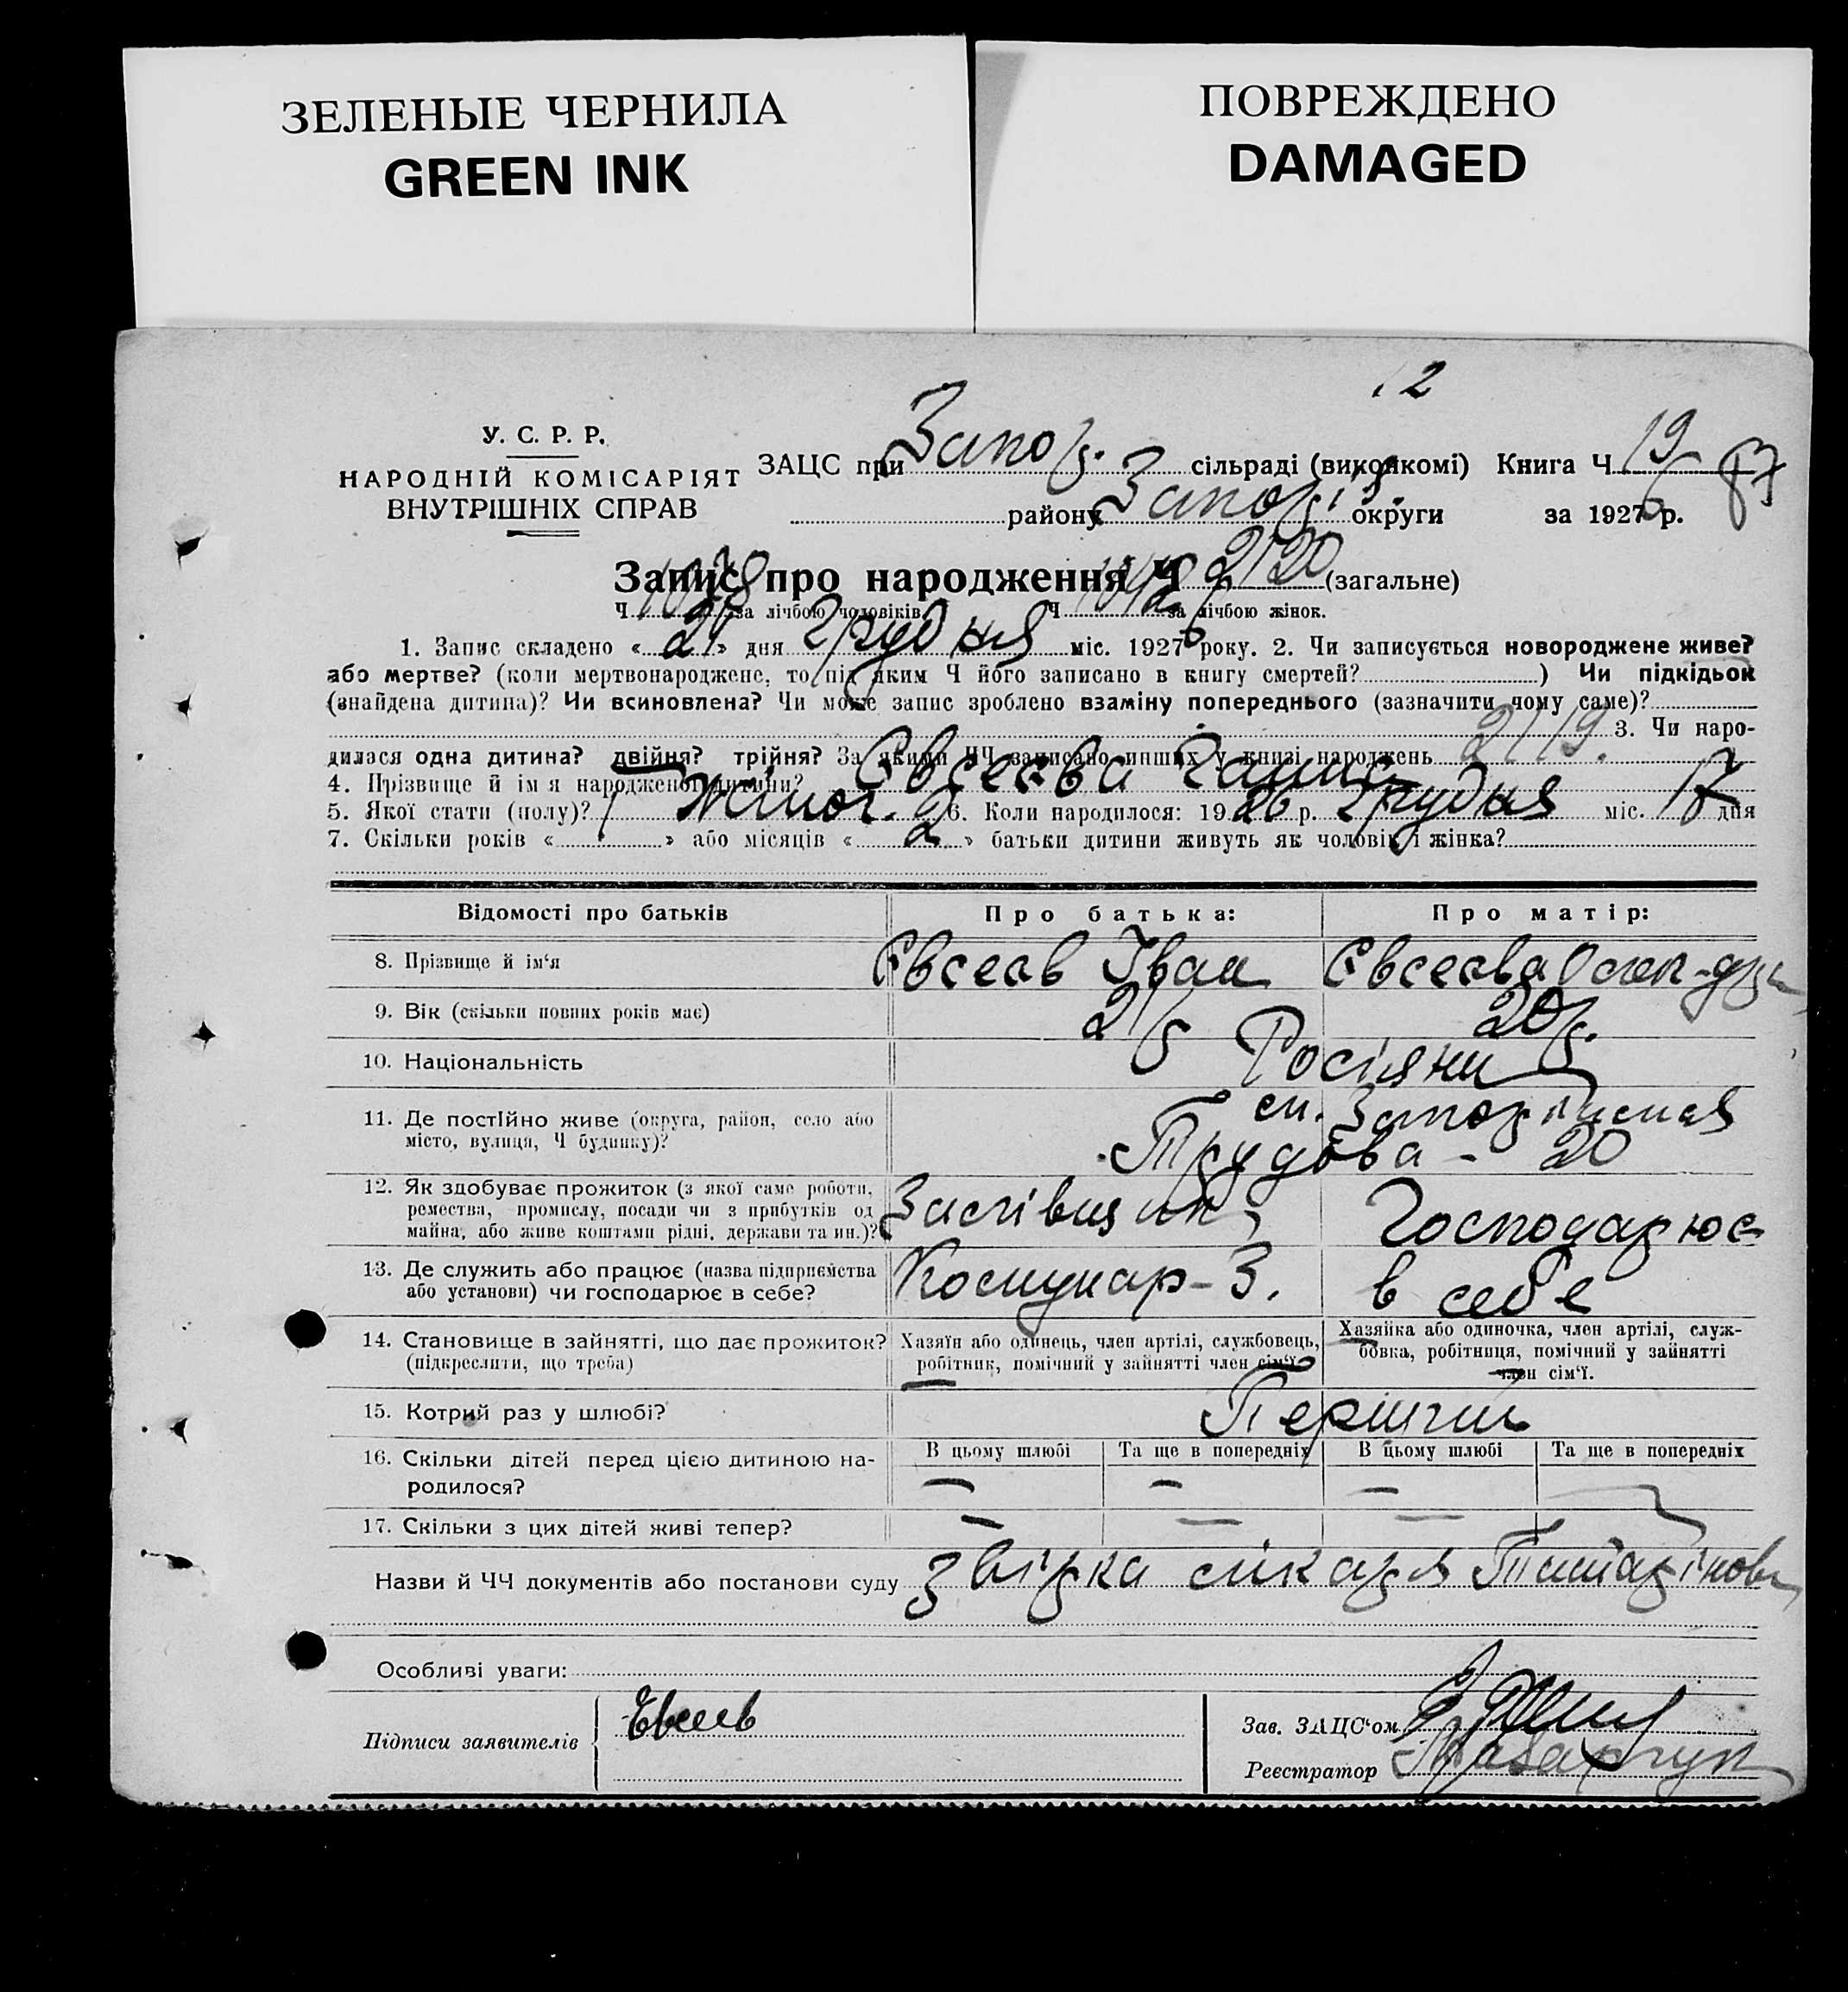 ЗЕЛЕНЫЕ ЧЕРНИЛА
GREEN INK
ПОВРЕЖДЕНО
DAMAGED
12
У. С. Р. Р.
НАРОДНІЙ КОМІСАРІЯТ
ВНУТРІШНІХ СПРАВ
ЗАЦС при Запор. сільраді (виконкомі) Книга Ч 19
87
району Запоріз. округи за 1926 р.
Запис про народження Ч 2120 (загальне)
Ч 1078 за лічбою чоловіків Ч 1042 за лічбою жінок.
1. Запис складено « 21 » дня Грудня міс. 1926 року. 2. Чи записується новороджене живе?
або мертве? (коли мертвонароджене, то під яким Ч його записано в книгу смертей? ) Чи підкідьок
(знайдена дитина)? Чи всиновлена? Чи може запис зроблено взаміну попереднього (зазначити чому саме)?
3. Чи наро-
дилася одна дитина? двійня? трійня? За якими ЧЧ записано инших у книзі народжень 2119.
4. Прізвище й ім'я народженої дитини? Євсеєва Ганна
5. Якої стати (полу)? Жіноч. 2 6. Коли народилося: 1926 р. Грудня міс. 17 дня
7. Скільки років « 1 » або місяців « 2 » батьки дитини живуть як чоловік і жінка?
Відомості про батьків Про батька: Про матір:
8. Прізвище й ім'я Євсеєв Іван Євсеєва
9. Вік (скільки повних років має) 21 р 20 р.
10. Національність Росіяни
11. Де постійно живе (округа, район, село або
місто, вулиця, Ч будинку)?
Трудова - 20
12. Як здобуває прожиток (з якої саме роботи,
ремества, промислу, посади чи з прибутків од
майна, або живе коштами рідні, держави та ин.)?
Господарює
13. Де служить або працює (назва підприємства
або установи) чи господарює в себе? Комунар-3. в себе
14. Становище в зайнятті, що дає прожиток?
(підкреслити, що треба)
Хазяїн або одинець, член артілі, службовець,
робітник, помічний у зайнятті член сім'ї
Хазяйка або одиночка, член артілі, служ-
бовка, робітниця, помічний у зайнятті
член сім'ї.
15. Котрий раз у шлюбі? Перший
16. Скільки дітей перед цією дитиною на-
родилося?
В цьому шлюбі Та ще в попередніх В цьому шлюбі Та ще в попередніх
— — — —
17. Скільки з цих дітей живі тепер? — — —
Назви й ЧЧ документів або постанови суду лікаря
Особливі уваги:
Підписи заявителів Евсеев
Зав. ЗАЦС'ом
Реєстратор